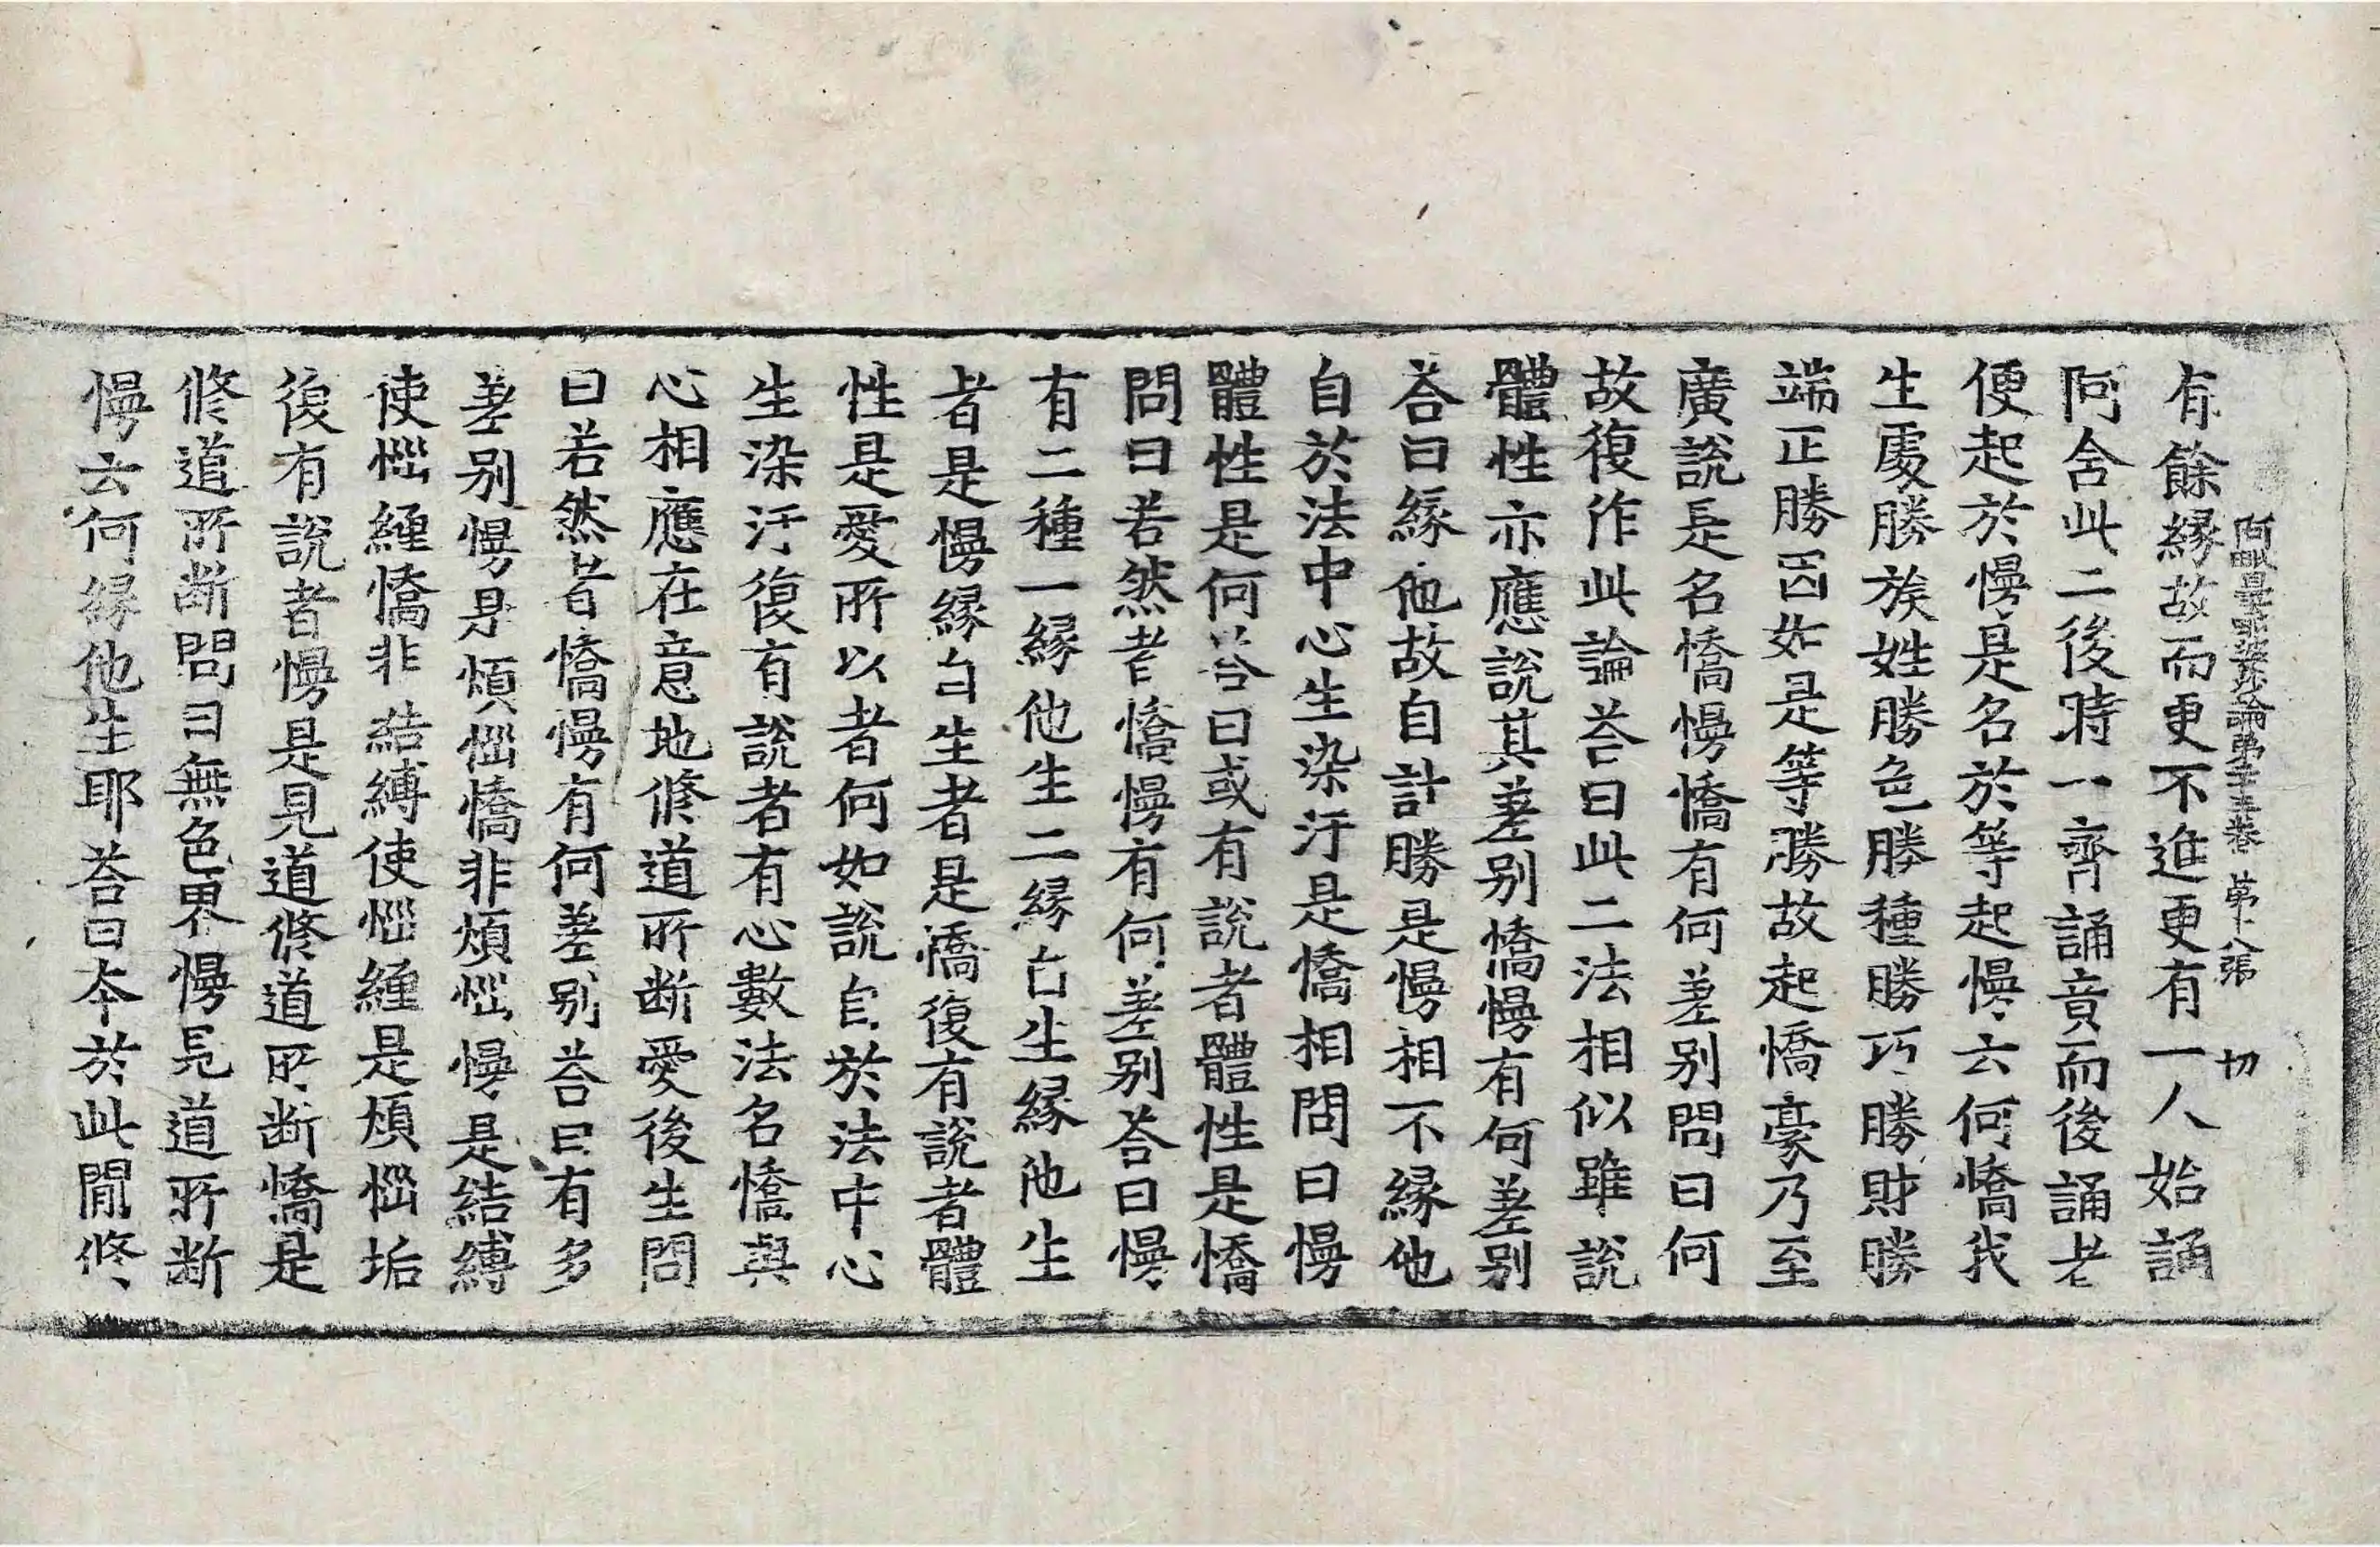 阿毗曇毗婆沙論第二十五卷 第十八張 切
有餘緣故而更不進更有一人始誦
阿含此二後時一齊誦竟而後誦老
便起於慢是名於等起慢云何憍我
生處勝族姓勝色勝種勝巧勝財勝
端正勝因如是等勝故起憍豪乃至
廣說是名憍慢憍有何差别問曰何
故復作此論荅曰此二法相似雖說
體性亦應說其差别憍慢有何差别
荅曰緣他故自計勝是慢相不緣他
自於法中心生染汙是憍相問曰慢
體性是何荅曰或有說者體性是憍
問曰若然者憍慢有何差别荅曰慢
有二種一緣他生二緣自生緣他生
者是慢緣自生者是憍復有說者體
性是愛所以者何如說自於法中心
生染汙復有說者有心數法名憍與
心相應在意地修道所断愛後生問
曰若然者憍慢有何差别荅曰有多
差别慢是煩惱憍非煩惱慢是結縛
使惱纏憍非結縛使惱纏是煩惱垢
復有說者慢是見道修道所断憍是
修道所断問曰無色界慢見道所断
慢云何緣他生耶荅曰本於此間修